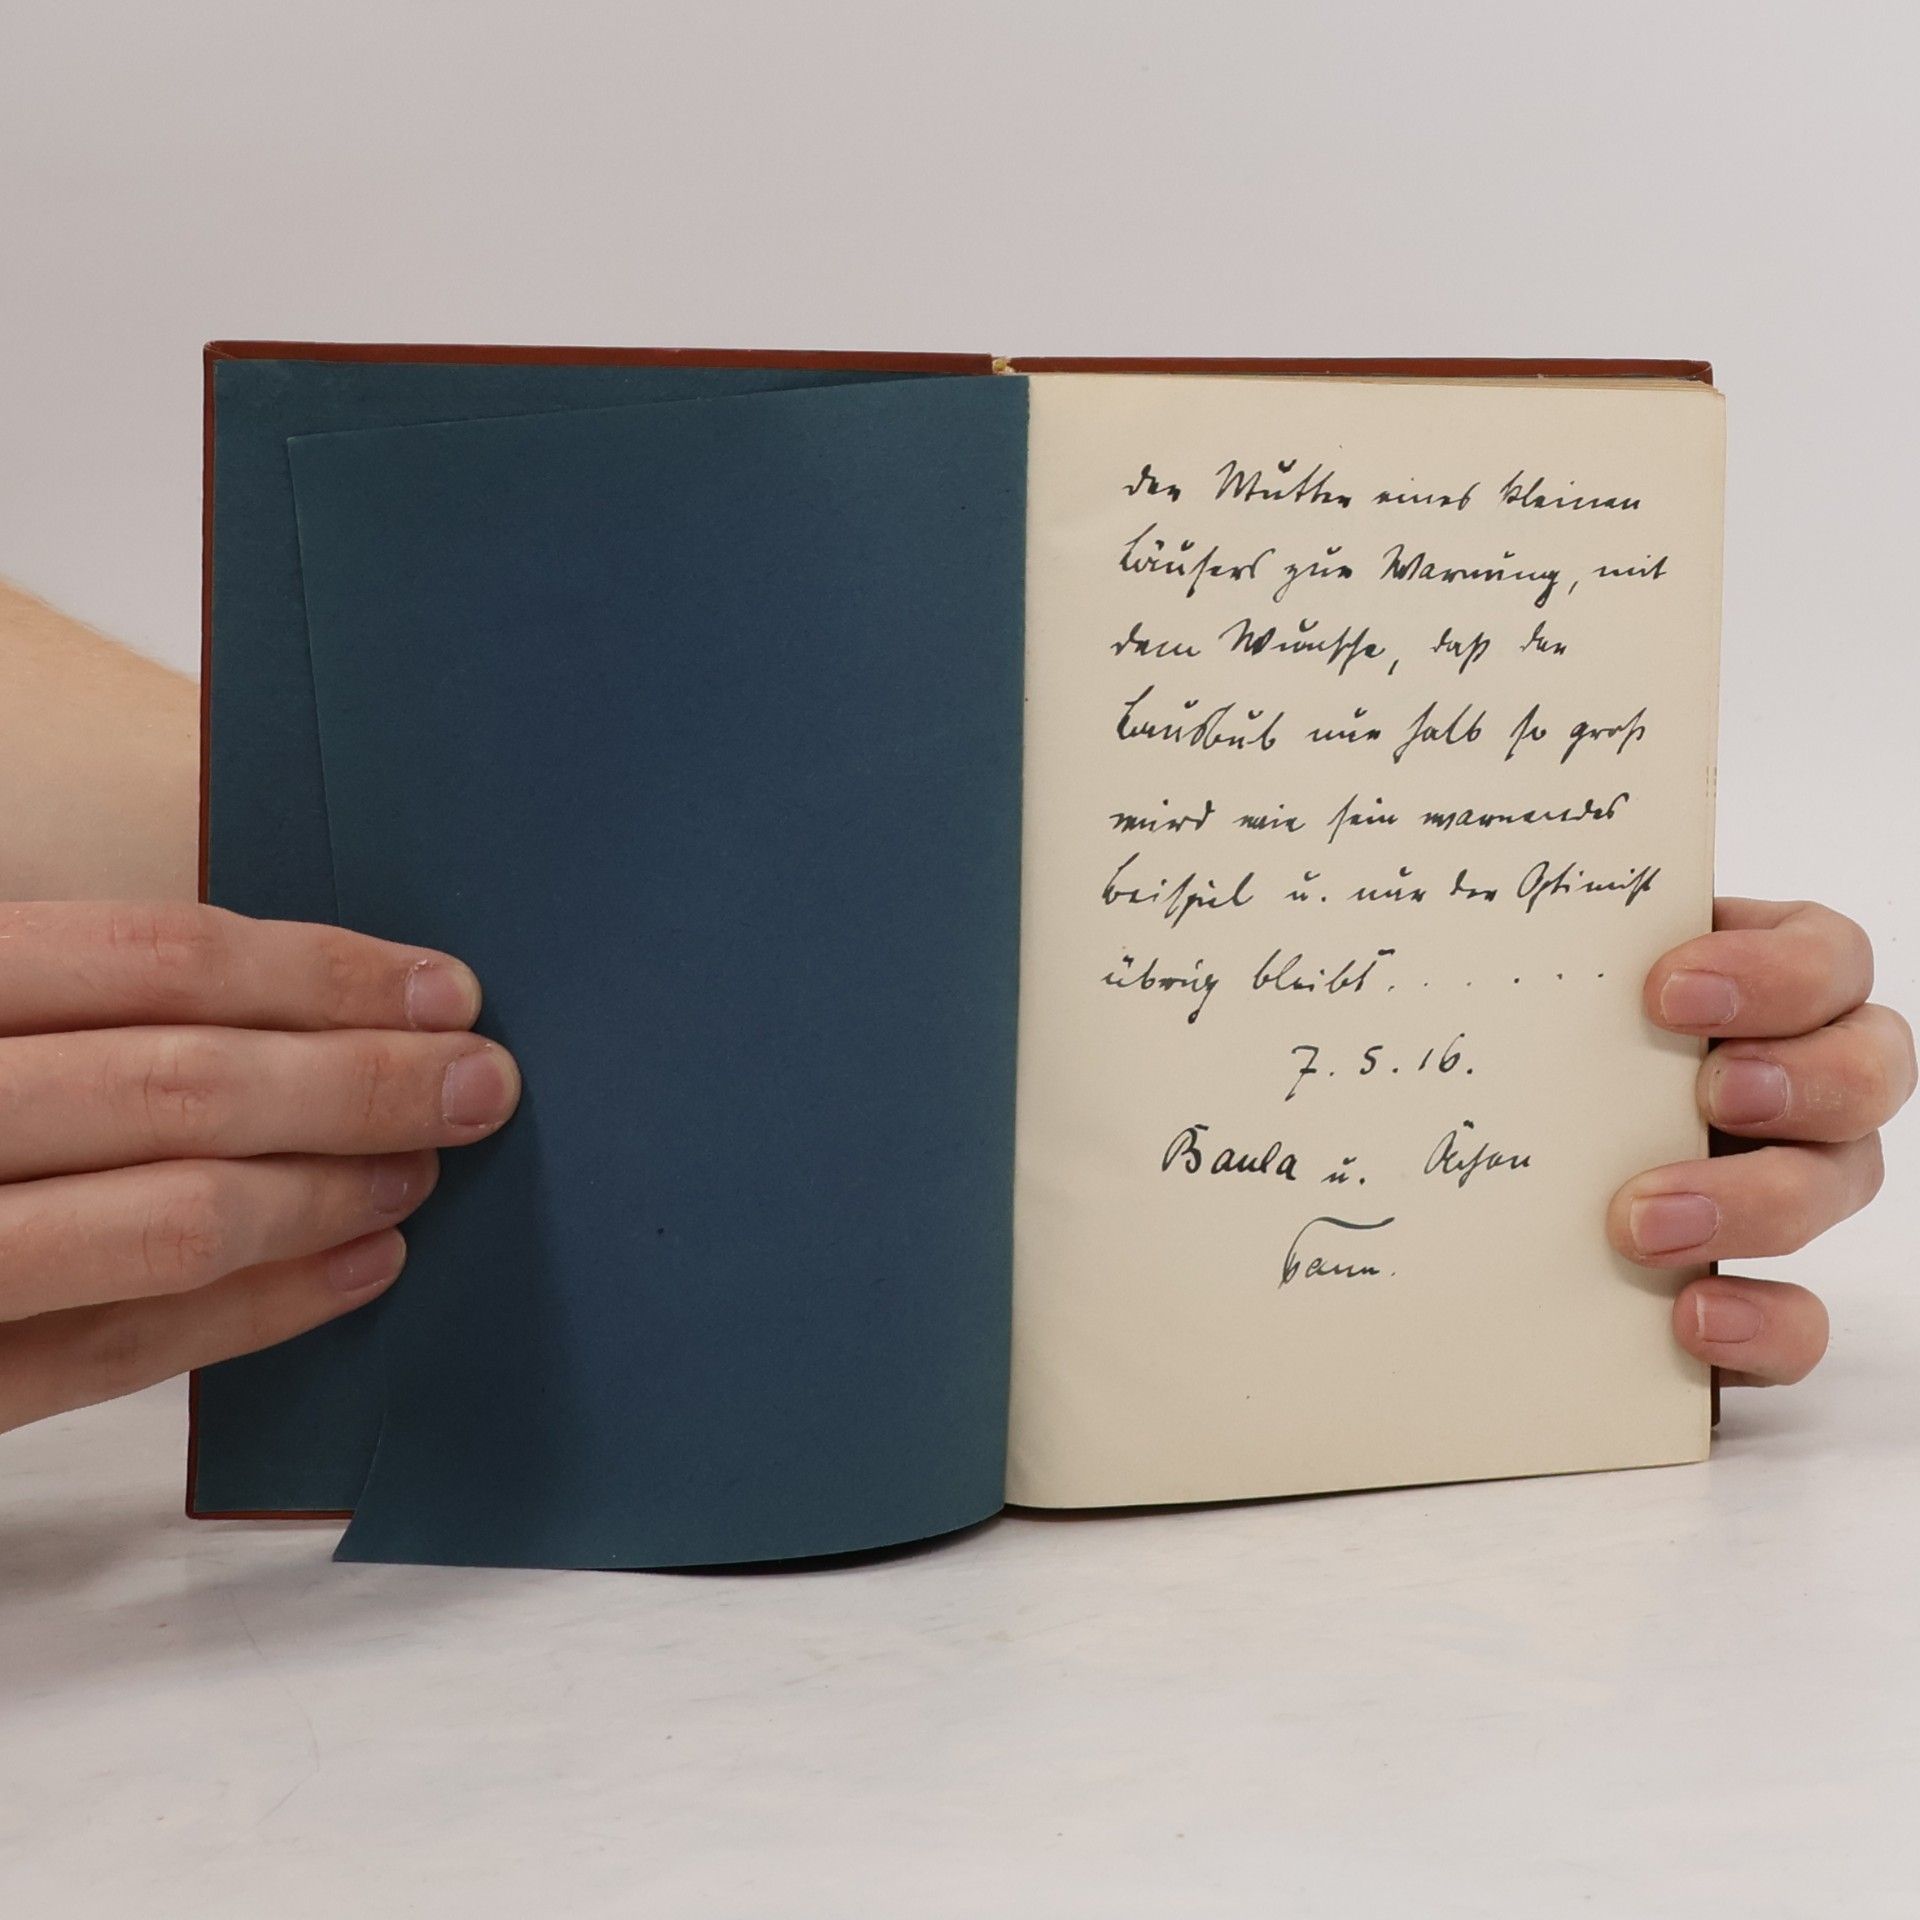 der Mutter eines kleinen
Läusers zur Warnung, mit
dem Wunsche, daß der
Lausbub nur halb so groß
wird wie sein warnendes
Beispiel u. nur der Optimist
übrig bleibt. . . . . .
7. 5. 16.
Paula u.